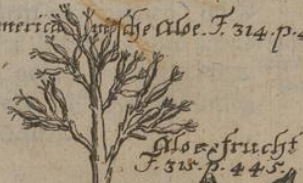 americanische Aloe. F. 314. p. 4
Aloesfrucht
F. 315. p. 445.